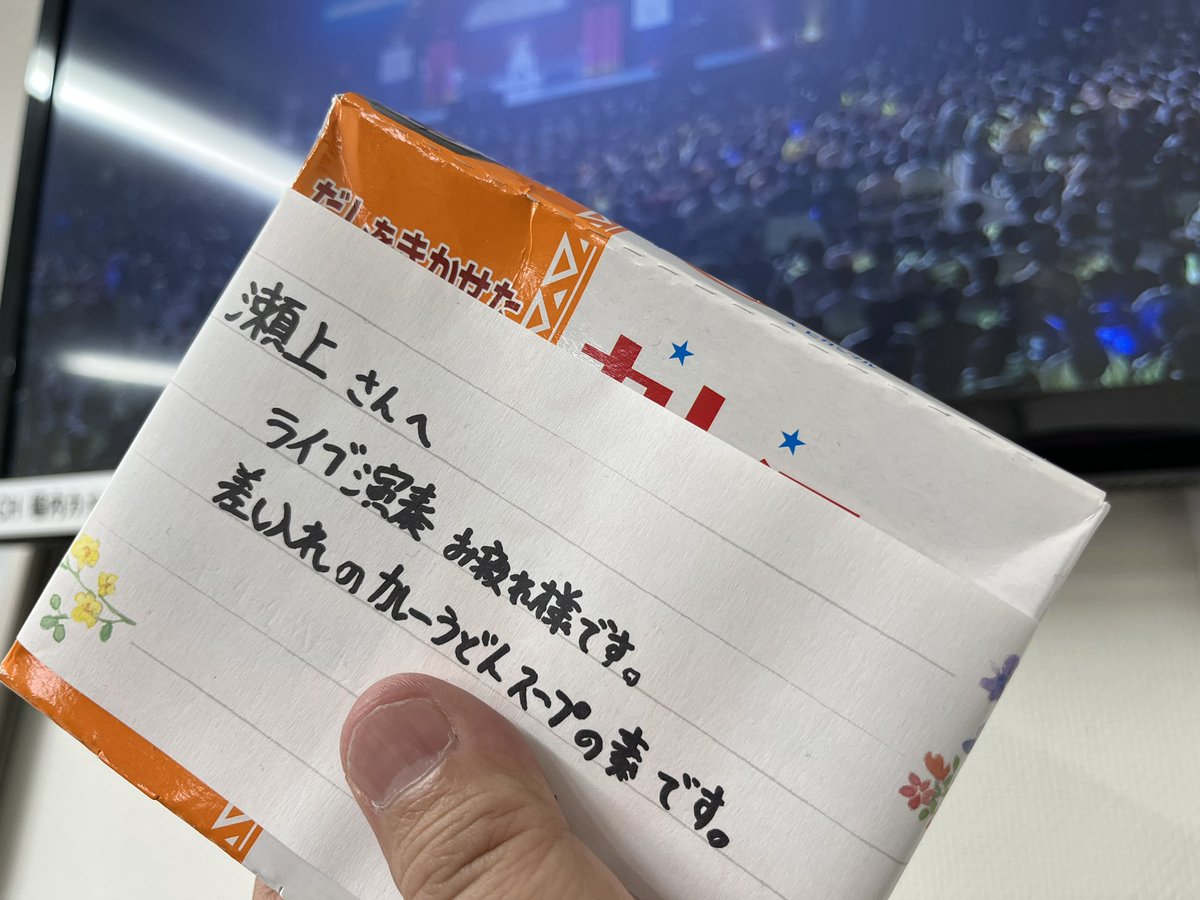 だしをきかせた
瀬上 さんへ
ライブ演奏 お疲れ様です。
差し入れの カレーうどんスープの素 です。